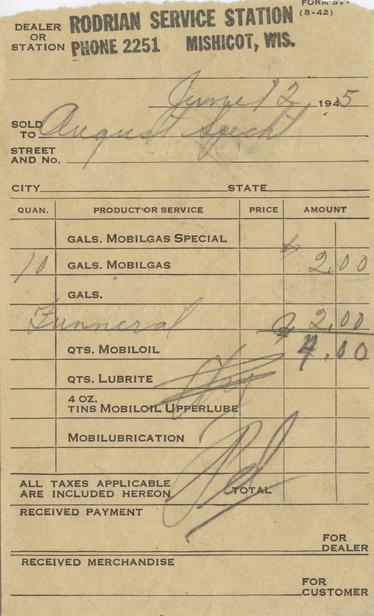 FORM
(8-42)
DEALER OR STATION RODRIAN SERVICE STATION
PHONE 2251 MISHICOT, WIS.
June 12 1945
SOLD TO August Specht
STREET AND No.
CITY STATE
QUAN. PRODUCT OR SERVICE PRICE AMOUNT
GALS. MOBILGAS SPECIAL
10 GALS. MOBILGAS $ 2.00
GALS.
Funneral $ 2.00
QTS. MOBILOIL 4.00
QTS. LUBRITE
4 OZ.
TINS MOBILOIL UPPERLUBE
MOBILUBRICATION
Pd
ALL TAXES APPLICABLE
ARE INCLUDED HEREON TOTAL
RECEIVED PAYMENT
FOR DEALER
RECEIVED MERCHANDISE
FOR CUSTOMER